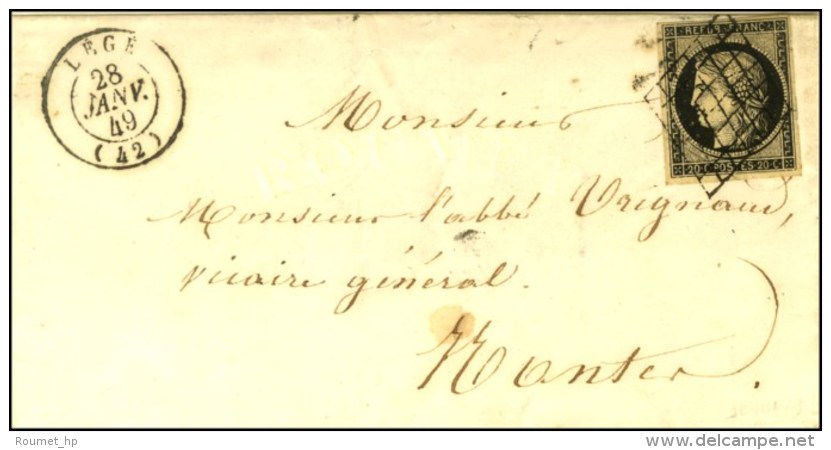 LÉGÉ
28
JANV.
49
(42)
REPUB. FRANC.
20 C POSTES 20 C
Monsieur
Monsieur l'abbé Vrignaud,
vicaire général.
Nantes.
Roumet_hp
www.delcampe.net